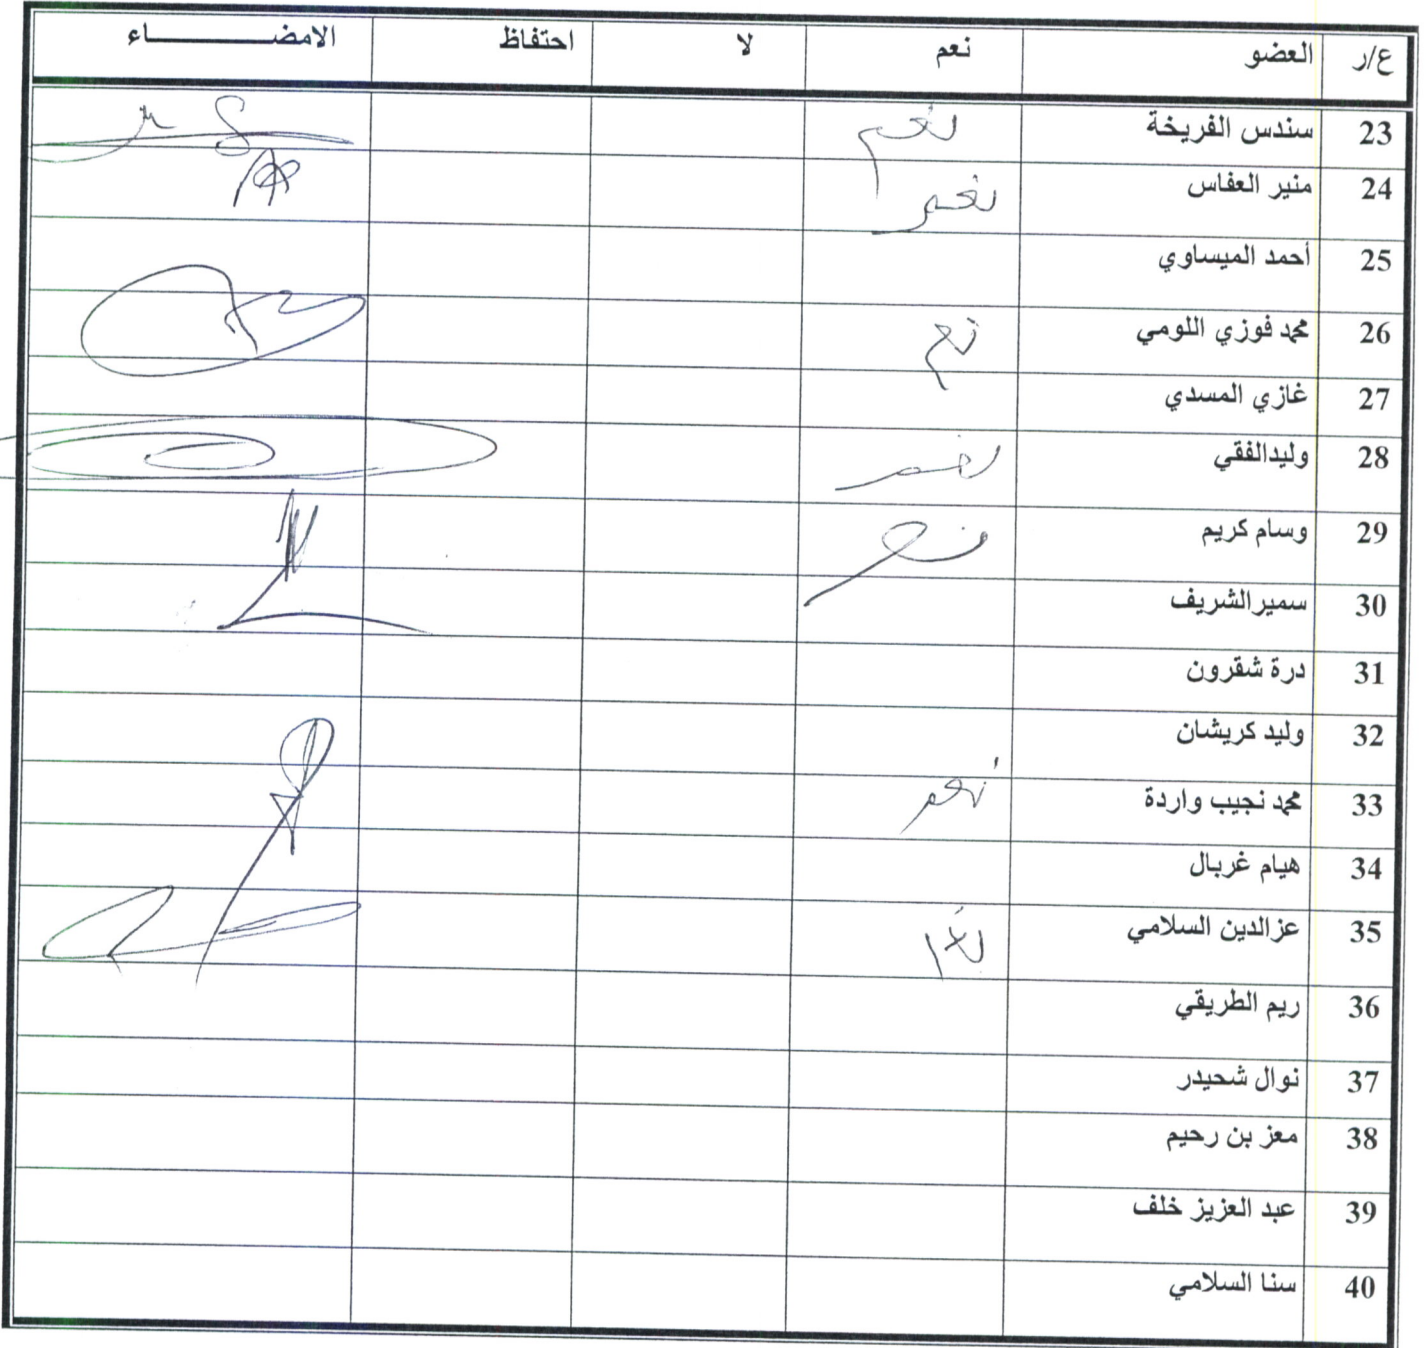 ع/ر العضو نعم لا احتفاظ الامضـــــــــاء
23 سندس الفريخة نعم
24 منير العفاس نعم
25 أحمد الميساوي
26 محمد فوزي اللومي نعم
27 غازي المسدي
28 وليدالفقي نعم
29 وسام كريم نعم
30 سميرالشريف
31 درة شقرون
32 وليد كريشان
33 محمد نجيب واردة نعم
34 هيام غربال
35 عزالدين السلامي نعم
36 ريم الطريقي
37 نوال شحيدر
38 معز بن رحيم
39 عبد العزيز خلف
40 سنا السلامي